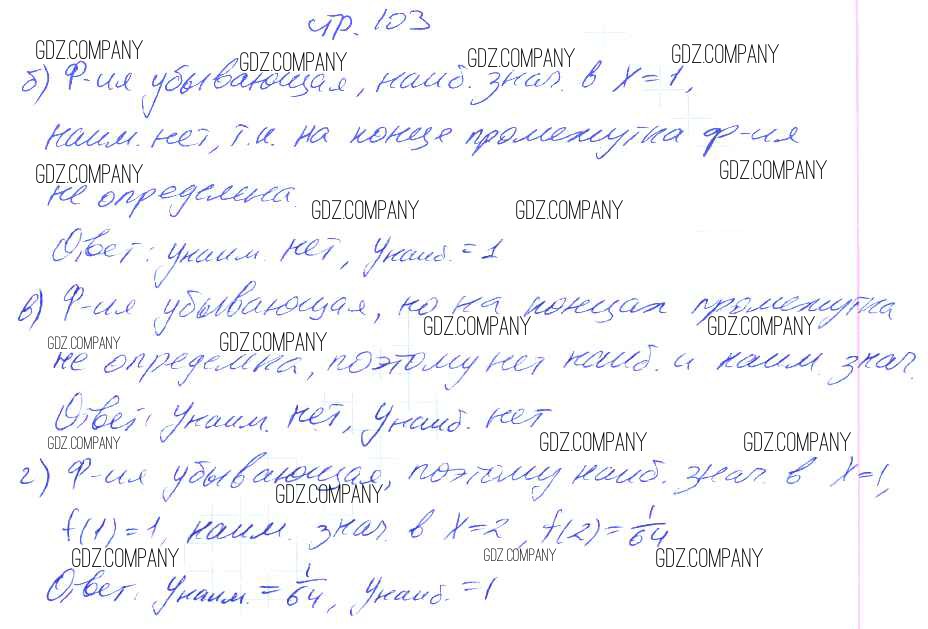 стр. 103
GDZ.COMPANY GDZ.COMPANY GDZ.COMPANY GDZ.COMPANY
б) Ф-ия убывающая, наиб. знач. в x=1,
наим. нет, т.к. на конце промежутка ф-ия
GDZ.COMPANY GDZ.COMPANY
не определена.
GDZ.COMPANY GDZ.COMPANY
Ответ: yнаим. нет, yнаиб. = 1
в) Ф-ия убывающая, но на концах промежутка
GDZ.COMPANY GDZ.COMPANY GDZ.COMPANY GDZ.COMPANY
не определена, поэтому нет наиб. и наим. знач.
Ответ: yнаим. нет, yнаиб. нет
GDZ.COMPANY GDZ.COMPANY GDZ.COMPANY
г) Ф-ия убывающая, поэтому наиб. знач. в x=1,
GDZ.COMPANY
f(1)=1, наим. знач. в x=2, f(2)=1/64
GDZ.COMPANY GDZ.COMPANY GDZ.COMPANY
Ответ: yнаим. = 1/64, yнаиб. = 1